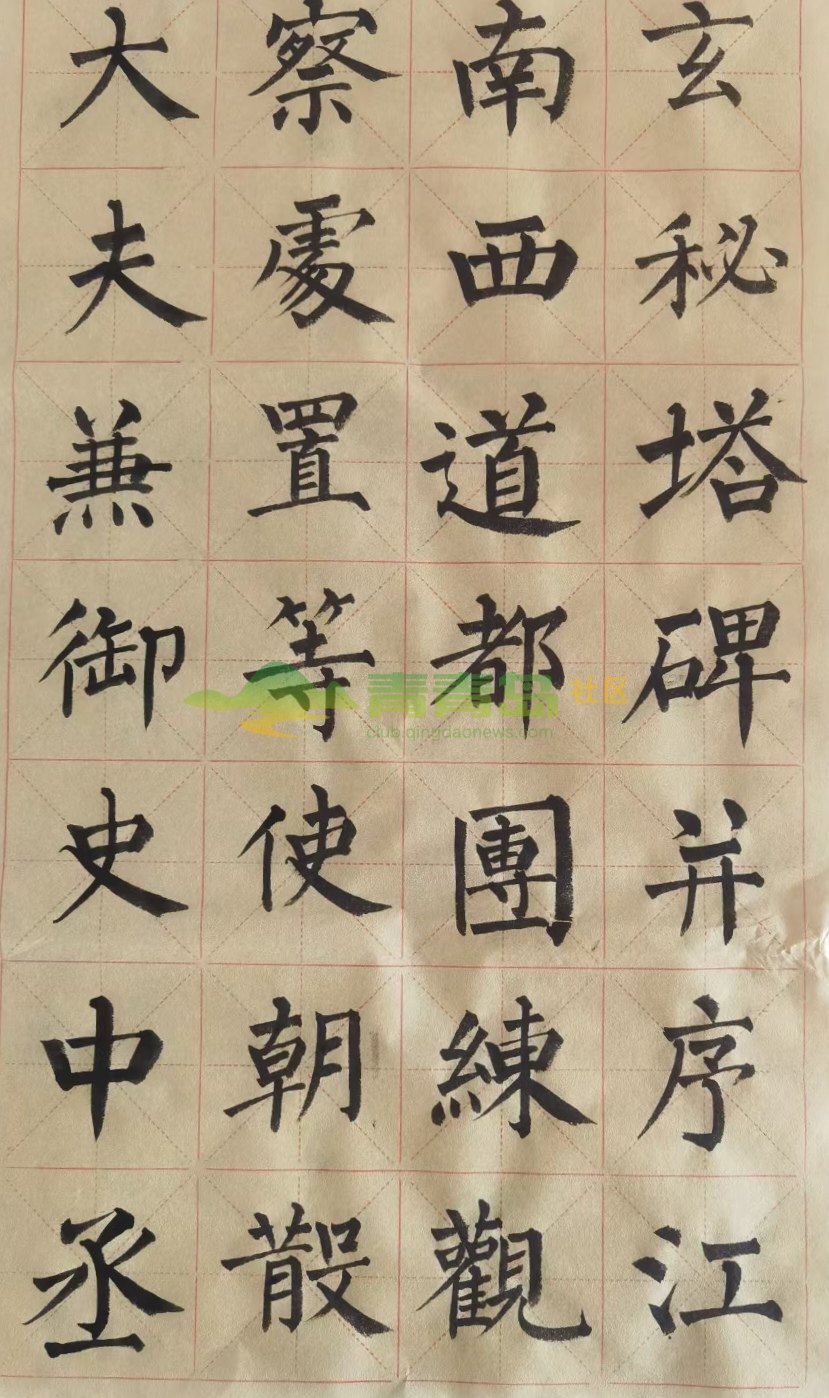 玄秘塔碑并序江
南西道都團練觀
察處置等使朝散
大夫兼御史中丞
青青岛社区
club.qingdaonews.com